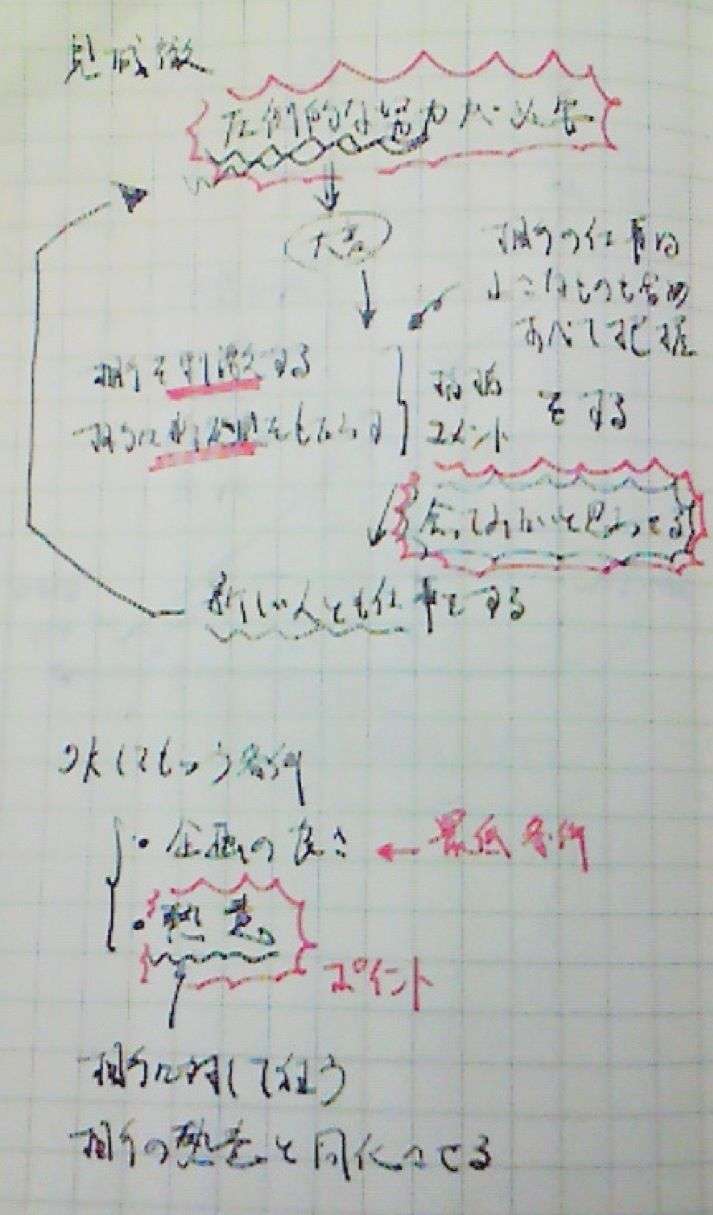 見城徹
圧倒的な努力が必要
相手の仕事は
小さなものも含め
すべて把握
相手を刺激する
相手に刺激をもたらす
コメント
をする
会ってみたいと思わせる
新しい人とも仕事をする
してもらう条件
・企画の良さ
最低条件
・熱意
ポイント
相手に対して
相手の熱意と同化させる